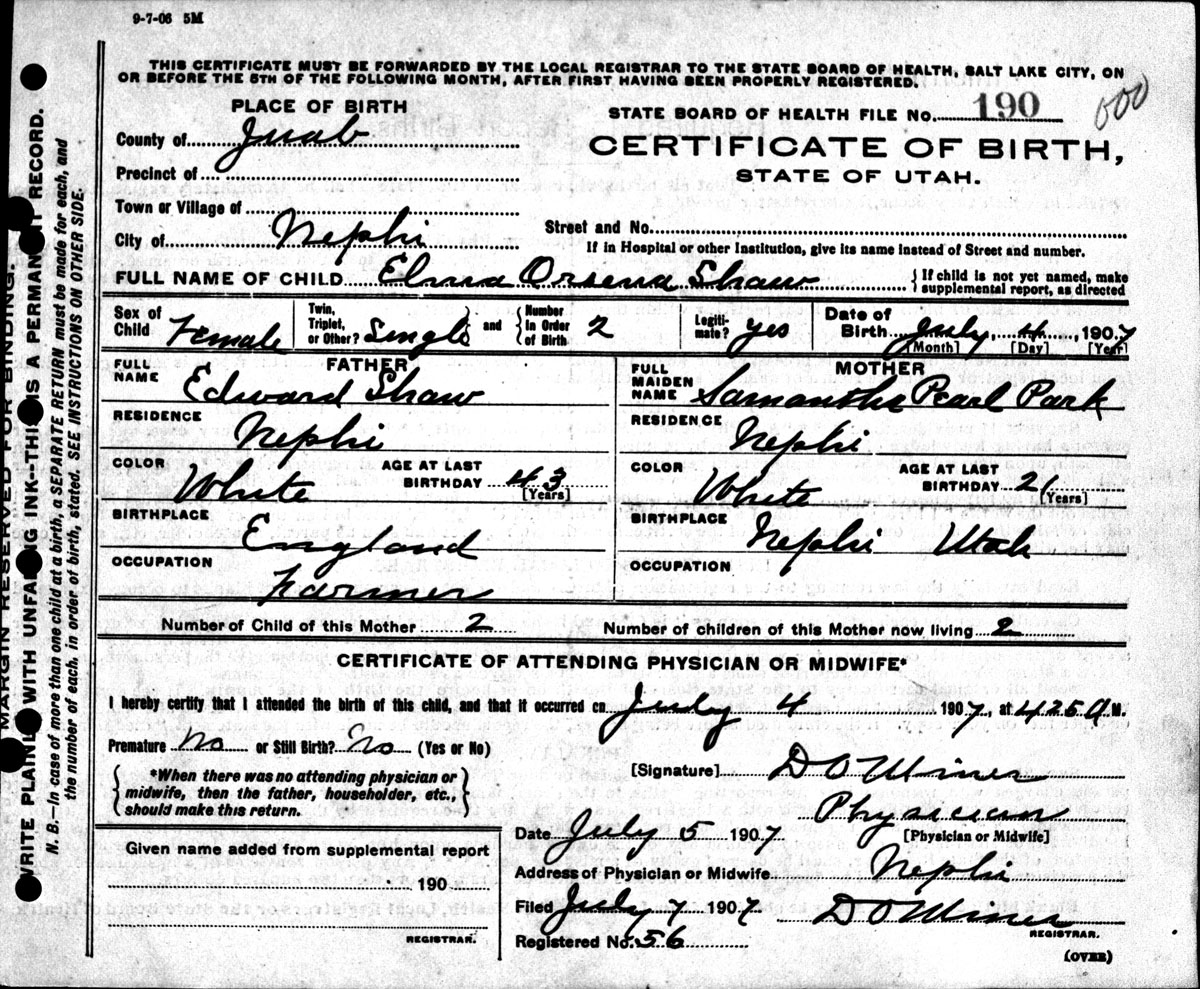 9-7-06 5M
THIS CERTIFICATE MUST BE FORWARDED BY THE LOCAL REGISTRAR TO THE STATE BOARD OF HEALTH, SALT LAKE CITY, ON
OR BEFORE THE 5TH OF THE FOLLOWING MONTH, AFTER FIRST HAVING BEEN PROPERLY REGISTERED.
PLACE OF BIRTH
STATE BOARD OF HEALTH FILE No. 190
000
County of Juab
CERTIFICATE OF BIRTH,
STATE OF UTAH.
Precinct of
Town or Village of
Street and No.
City of Nephi
If in Hospital or other Institution, give its name instead of Street and number.
FULL NAME OF CHILD Elma Orsena Shaw
{If child is not yet named, make
supplemental report, as directed
Sex of Child Female
Twin, Triplet, or Other? Single and {Number in Order of Birth 2
Legitimate? yes
Date of Birth July, 4, 1907
[Month] [Day] [Year]
FATHER
FULL NAME Edward Shaw
RESIDENCE Nephi
COLOR White AGE AT LAST BIRTHDAY 43
[Years]
BIRTHPLACE England
OCCUPATION Farmer
MOTHER
FULL MAIDEN NAME Samantha Pearl Park
RESIDENCE Nephi
COLOR White AGE AT LAST BIRTHDAY 21
[Years]
BIRTHPLACE Nephi Utah
OCCUPATION
Number of Child of this Mother 2
Number of children of this Mother now living 2
CERTIFICATE OF ATTENDING PHYSICIAN OR MIDWIFE*
I hereby certify that I attended the birth of this child, and that it occurred on July 4 1907, at 425 A M.
Premature No or Still Birth? No (Yes or No)
{*When there was no attending physician or
midwife, then the father, householder, etc.,
should make this return.}
[Signature] D O Miner
Physician
[Physician or Midwife]
Date July 5 1907
Address of Physician or Midwife Nephi
Filed July 7 1907 D O Miner
REGISTRAR.
Registered No. 56
Given name added from supplemental report
190
REGISTRAR.
(OVER)
MARGIN RESERVED FOR BINDING.
WRITE PLAINLY WITH UNFADING INK--THIS IS A PERMANENT RECORD.
N. B.—In case of more than one child at a birth, a SEPARATE RETURN must be made for each, and
the number of each, in order of birth, stated. SEE INSTRUCTIONS ON OTHER SIDE.